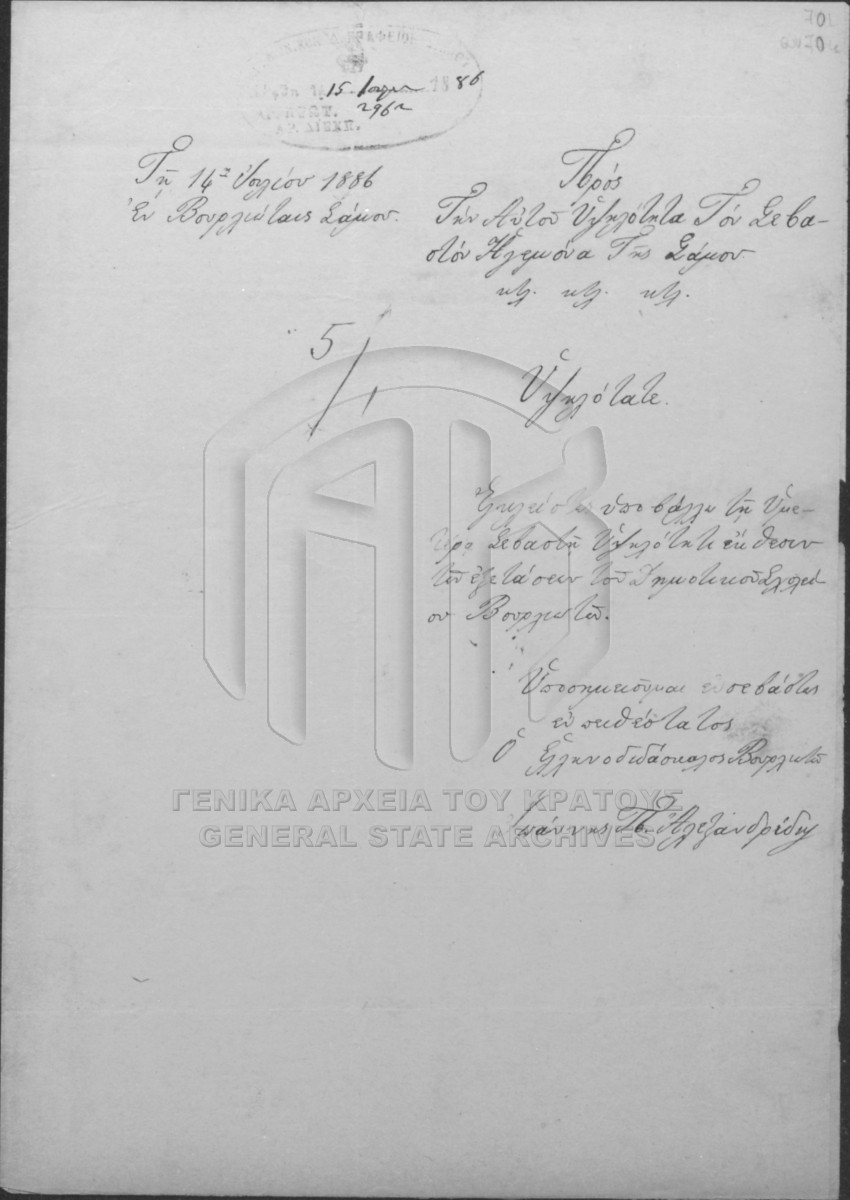 701
15 Ιουλίου 1886
2962
ΠΡΩΤ.
ΑΡ. ΔΙΕΚΠ.
Τῇ 14ῃ Ἰουλίου 1886
Ἐν Βουρλιώταις Σάμου.
Πρός
Τήν Αὐτοῦ Ὑψηλότητα Τόν Σεβα-
στόν Ἡγεμόνα Τῆς Σάμου.
κτλ. κτλ. κτλ.
5/1
Ὑψηλότατε.
Ἐγκλείστως ὑποβάλλω τῇ Ὑμε-
τέρᾳ Σεβαστῇ Ὑψηλότητι ἔκθεσιν
τῶν ἐξετάσεων τοῦ Δημοτικοῦ Σχολεί
ου Βουρλιωτῶν.
Ὑποσημειοῦμαι εὐσεβάστως
εὐπειθέστατος
Ὁ Ἑλληνοδιδάσκαλος Βουρλιωτῶν
Ἰωάννης Π. Ἀλεξανδρίδης
ΓΕΝΙΚΑ ΑΡΧΕΙΑ ΤΟΥ ΚΡΑΤΟΥΣ
GENERAL STATE ARCHIVES